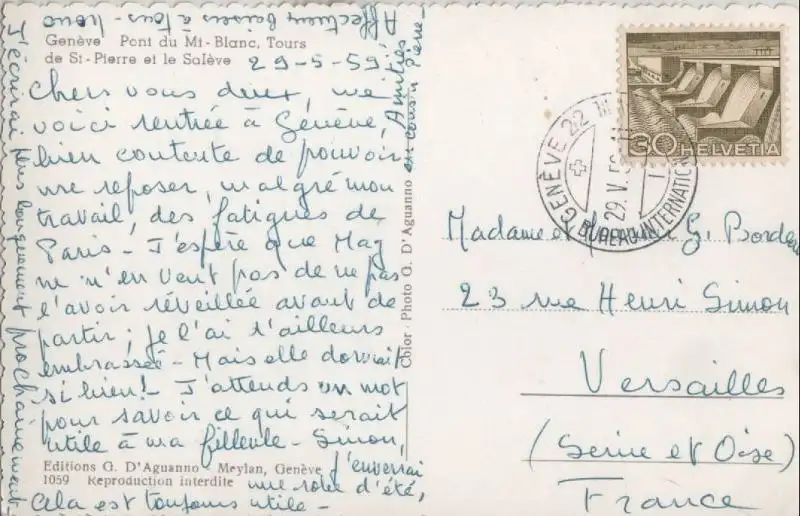 Genève Pont du Mt-Blanc, Tours
de St-Pierre et le Salève
29-5-59
Chers vous deux, me
voici rentrée à Genève,
bien contente de pouvoir
me reposer, malgré mon
travail, des fatigues de
Paris - J'espère que Mag
ne m'en veut pas de ne pas
l'avoir réveillée avant de
partir ; je l'ai d'ailleurs
embrassée - Mais elle dormait
si bien! - J'attends un mot
pour savoir ce qui serait
utile à ma filleule - Sinon,
j'enverrai
une robe d'été,
cela est toujours utile -
J'écrirai plus longuement prochainement
Affectueux baisers à tous -
Amitiés
au cousin Pierre -
Editions G. D'Aguanno Meylan, Genève
1059 Reproduction interdite
Color - Photo G. D'Aguanno
30 HELVETIA
GENÈVE 22
29.V.59
BUREAU INTERNATION
Madame et G. Borde
23 rue Henri Simon
Versailles
(Seine et Oise)
France